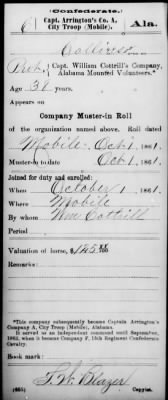 (Confederate.)
C Capt. Arrington's Co. A, Ala.
City Troop (Mobile).
Pvt., Capt. William Cottrill's Company,
Alabama Mounted Volunteers.*
Age 31 years.
Appears on
Company Muster-in Roll
of the organization named above. Roll dated
Mobile, Oct 1, 1861.
Muster-in to date Oct 1, 1861.
Joined for duty and enrolled:
When October 1, 1861.
Where Mobile
By whom Wm Cottrill
Period
Valuation of horse, $145 00/100
Remarks:
*This company subsequently became Captain Arrington's
Company A, City Troop (Mobile), Alabama.
It served as an independent command until September,
1862, when it became Company F, 15th Regiment Confederate
Cavalry.
Book mark:
(665) Copyist.